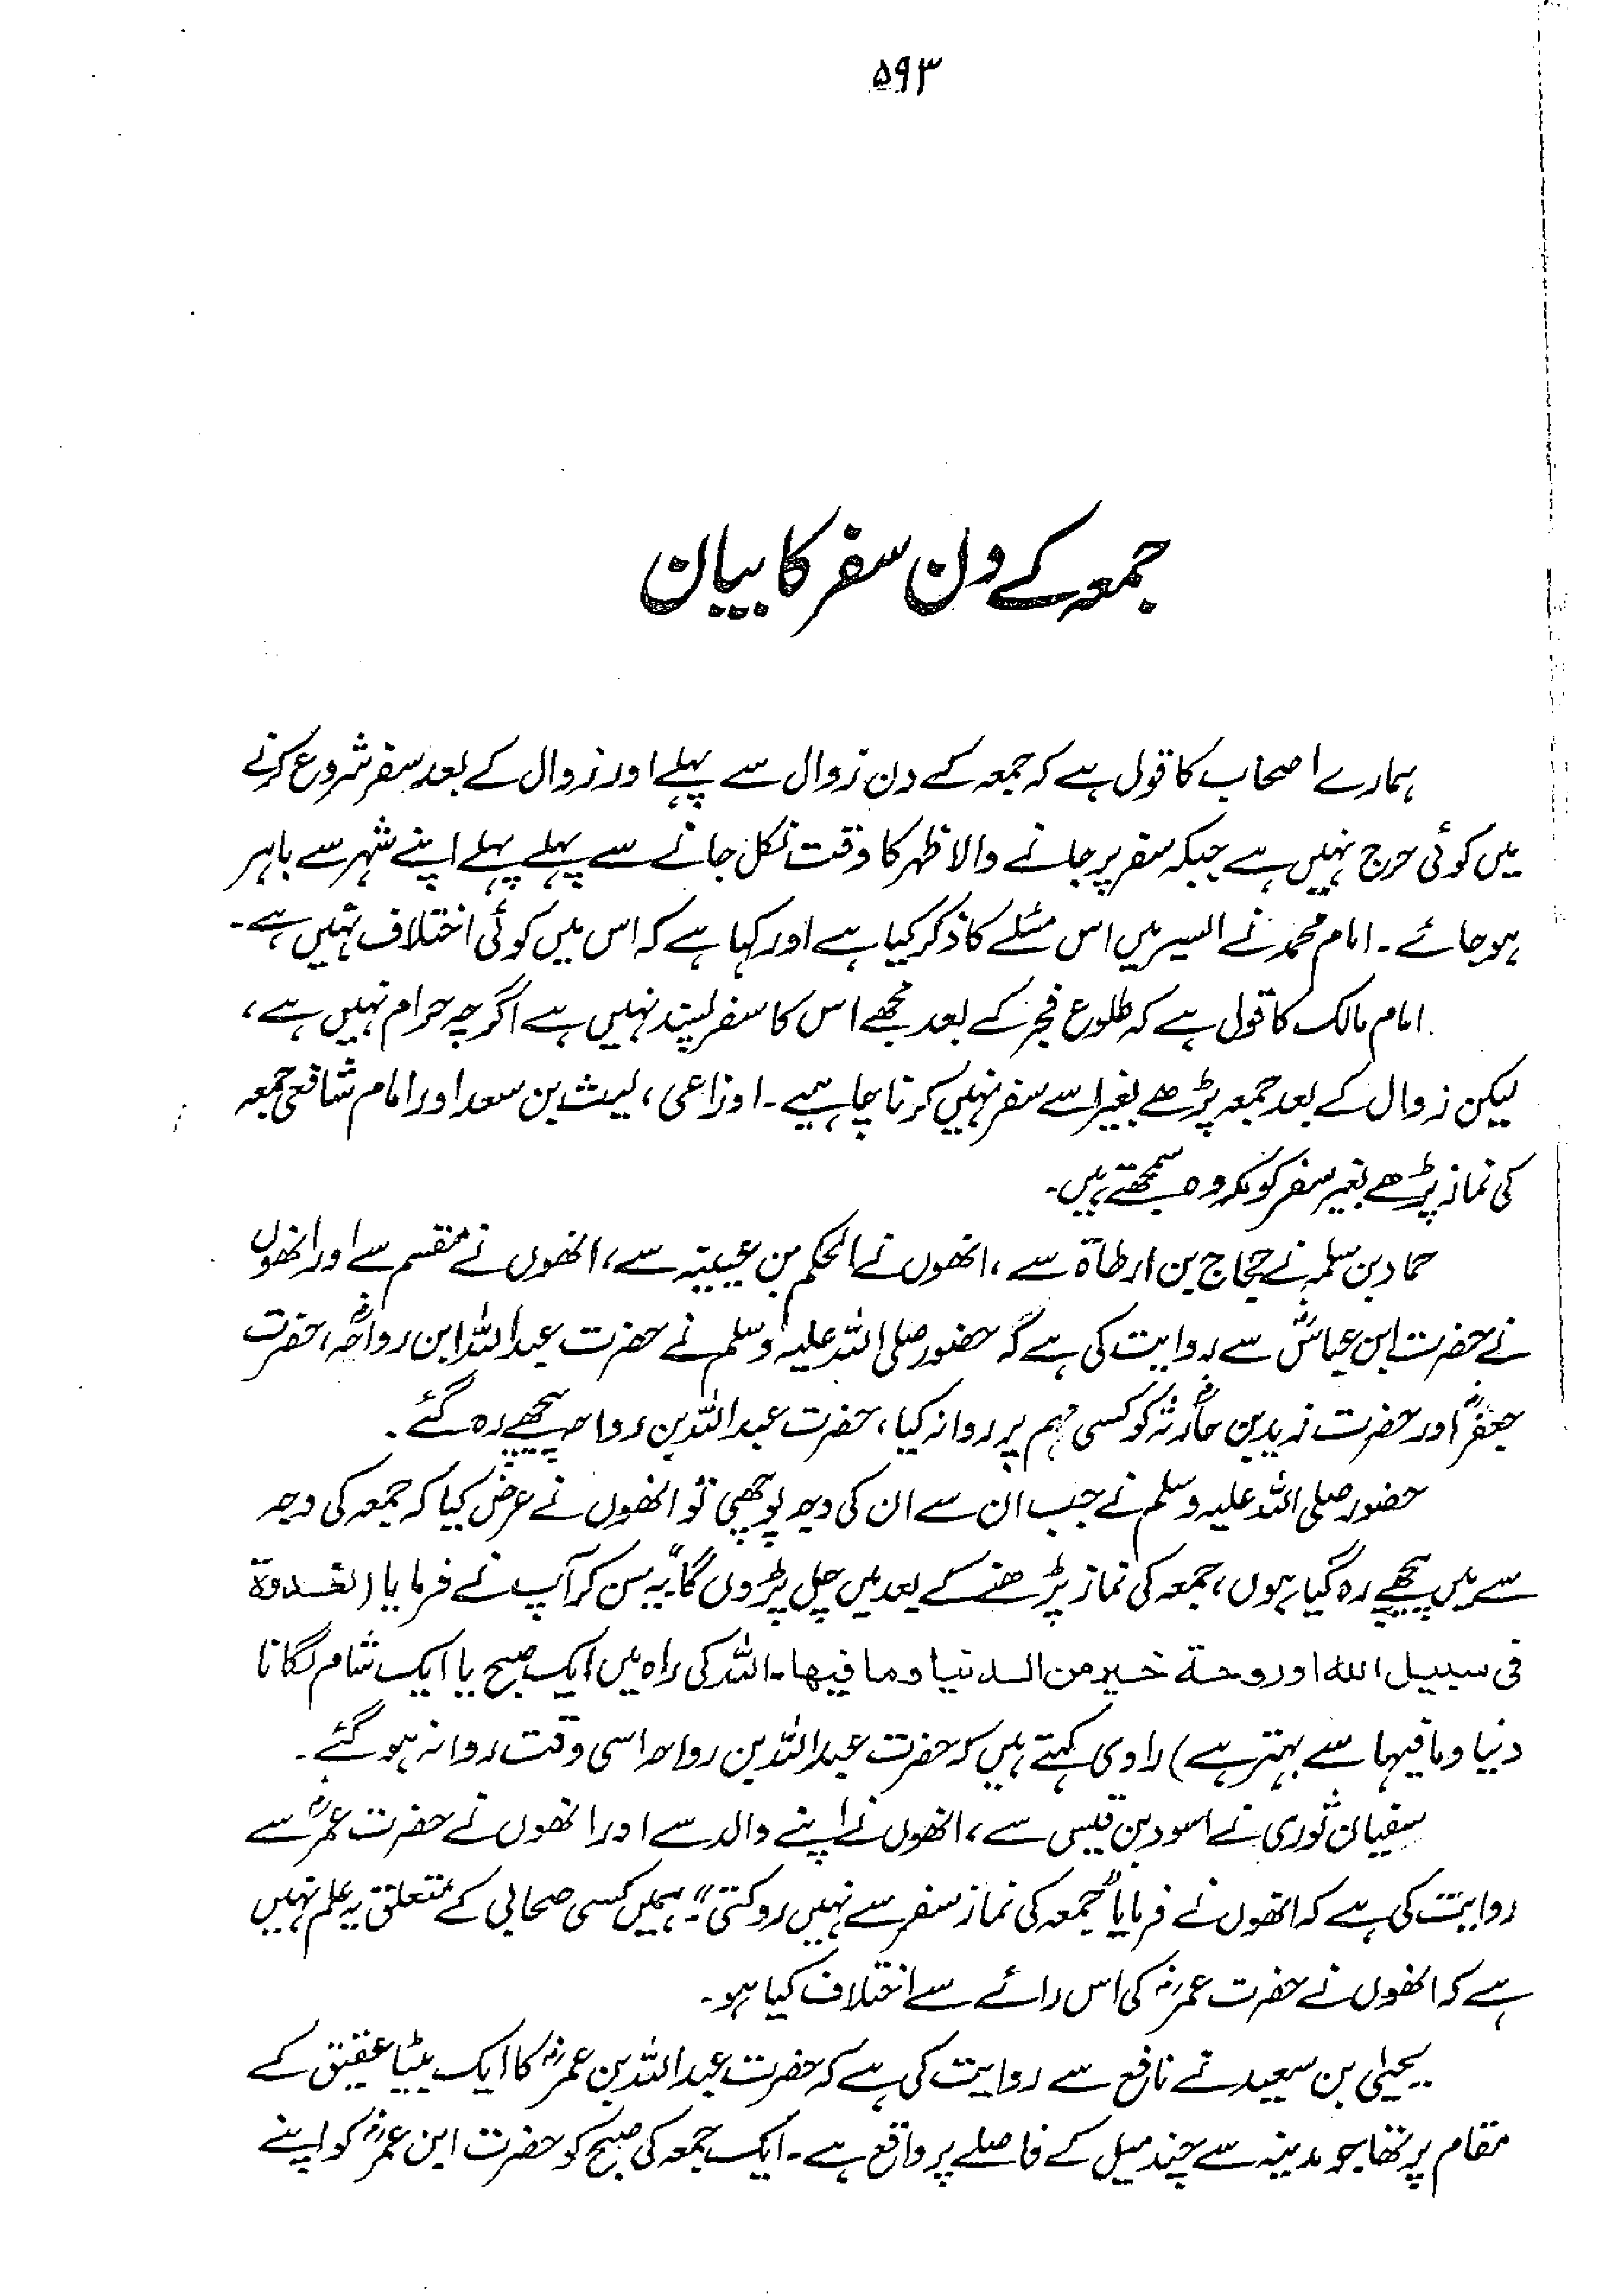 ۵۹۳
جمعہ کے دن سفر کا بیان
ہمارے اصحاب کا قول ہے کہ جمعہ کے دن زوال سے پہلے اور زوال کے بعد سفر شروع کرنے
میں کوئی حرج نہیں ہے جبکہ سفر پر جانے والا ظہر کا وقت نکل جانے سے پہلے پہلے اپنے شہر سے باہر
ہو جائے۔ امام محمد نے السیر میں اس مسئلے کا ذکر کیا ہے اور کہا ہے کہ اس میں کوئی اختلاف نہیں ہے۔
امام مالک کا قول ہے کہ طلوع فجر کے بعد مجھے اس کا سفر پسند نہیں ہے اگرچہ حرام نہیں ہے،
لیکن زوال کے بعد جمعہ پڑھے بغیر اسے سفر نہیں کرنا چاہیے۔ اوزاعی، لیث بن سعد اور امام شافعی جمعہ
کی نماز پڑھے بغیر سفر کو مکروہ سمجھتے ہیں۔
حماد بن سلمہ نے حجاج بن ارطاۃ سے، انھوں نے الحکم بن عیینہ سے، انھوں نے مقسم سے اور انھوں
نے حضرت ابن عباسؓ سے روایت کی ہے کہ حضور صلی اللہ علیہ وسلم نے حضرت عبداللہ ابن رواحہؓ، حضرت
جعفرؓ اور حضرت زید بن حارثہؓ کو کسی مہم پر روانہ کیا، حضرت عبداللہ بن رواحہ پیچھے رہ گئے۔
حضور صلی اللہ علیہ وسلم نے جب ان سے ان کی وجہ پوچھی تو انھوں نے عرض کیا کہ جمعہ کی وجہ
سے میں پیچھے رہ گیا ہوں، جمعہ کی نماز پڑھنے کے بعد میں چل پڑوں گا" یہ سن کر آپ نے فرمایا (لغدوۃ
فی سبیل اللہ او روحة خیر من الدنیا وما فیها۔ اللہ کی راہ میں ایک صبح یا ایک شام لگانا
دنیا و مافیہا سے بہتر ہے) راوی کہتے ہیں کہ حضرت عبداللہ بن رواحہ اسی وقت روانہ ہو گئے۔
سفیان ثوری نے اسود بن قیس سے، انھوں نے اپنے والد سے اور انھوں نے حضرت عمرؓ سے
روایت کی ہے کہ انھوں نے فرمایا "جمعہ کی نماز سفر سے نہیں روکتی"۔ ہمیں کسی صحابی کے متعلق یہ علم نہیں
ہے کہ انھوں نے حضرت عمرؓ کی اس رائے سے اختلاف کیا ہو۔
یحییٰ بن سعید نے نافع سے روایت کی ہے کہ حضرت عبداللہ بن عمرؓ کا ایک بیٹا عقیق کے
مقام پر تھا جو مدینہ سے چند میل کے فاصلے پر واقع ہے۔ ایک جمعہ کی صبح کو حضرت ابن عمرؓ کو اپنے